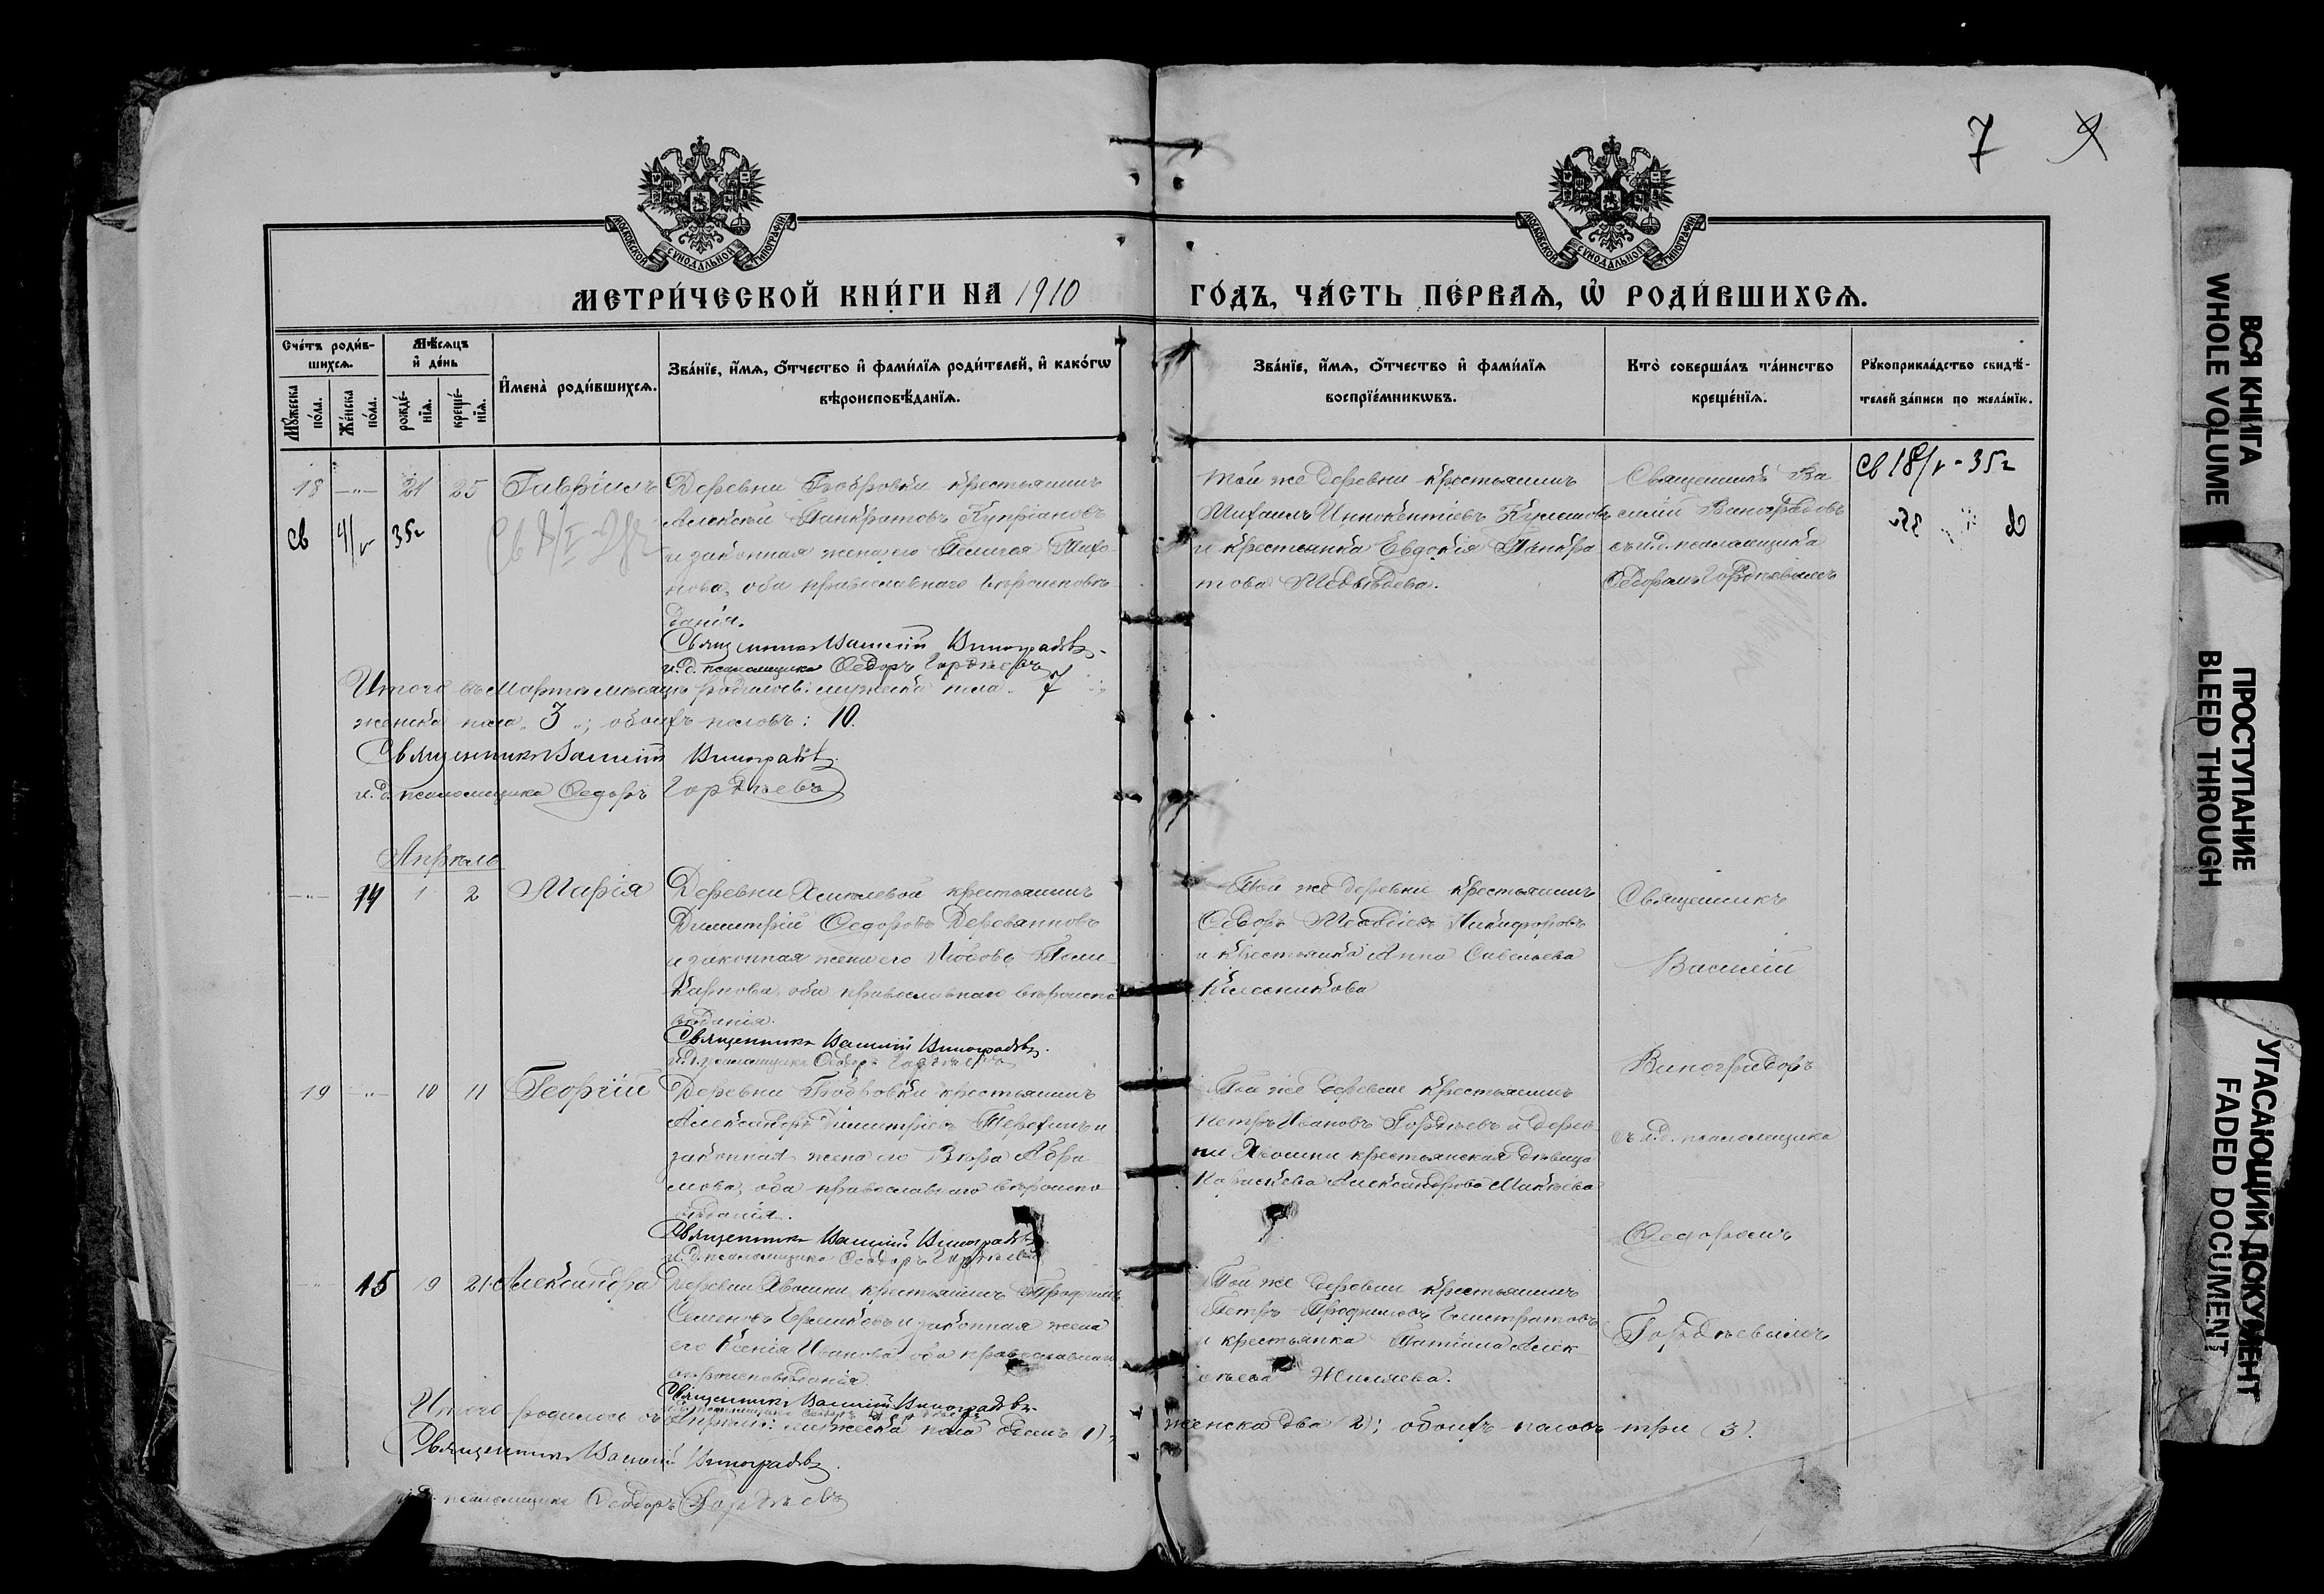 7
МОСКОВСКОЙ СѴНОДАЛЬНОЙ ТИПОГРАФІИ
МОСКОВСКОЙ СѴНОДАЛЬНОЙ ТИПОГРАФІИ
МЕТРИ́ЧЕСКОЙ КНИ́ГИ НА 1910
ГО́ДЪ, ЧА́СТЬ ПЕ́РВАѦ, Ѡ҆ РОДИ́ВШИХСѦ.
Сче́тъ роди́в-
шихсѧ.
Мꙋ́жеска по́ла.
Же́нска по́ла.
Мѣ́сѧцъ
и҆ де́нь
рожде́-
нїѧ.
креще́-
нїѧ.
И҆мена̀ роди́вшихсѧ.
Зва́нїе, и҆́мѧ, ѻ҆́тчество и҆ фами́лїѧ роди́телей, и҆ како́гѡ
вѣроисповѣ́данїѧ.
Зва́нїе, и҆́мѧ, ѻ҆́тчество и҆ фами́лїѧ
воспрїе́мникѡвъ.
Кто̀ соверша́лъ та́инство
креще́нїѧ.
Рꙋкоприкла́дство свидѣ́-
телей за́писи по жела́нїю.
18 —"— 21 25 Гавріилъ
Деревни Бобровки крестьянинъ
Алексѣй Панкратовъ Купріановъ
и законная жена его Пелагея Тихо
нова, оба православнаго вѣроисповѣ
данія.
Священникъ Василій Виноградовъ.
и.д. псаломщика Ѳедоръ Гордѣевъ
св 4/V 35г
той же деревни крестьянинъ
Михаилъ Иннокентіевъ Кулешовъ
и крестьянка Евдокія Панкра
това Медвѣдева.
Священникъ Ва
силій Виноградовъ
съ и.д. псаломщика
Ѳедоромъ Гордѣевымъ
Св 18/V - 35г
Итого въ Мартѣ мѣсяцѣ родилось: мужеска пола " 7 "
женска пола " 3 "; обоихъ половъ: 10.
Священникъ Василій Виноградовъ.
и.д. псаломщика Ѳедоръ Гордѣевъ
Апрѣль
—"— 14 1 2 Марія
Деревни крестьянинъ
Димитрій Ѳедоровъ Деревянновъ
и законная жена его Любовь Поли
карпова, оба православнаго вѣроиспо
вѣданія.
Священникъ Василій Виноградовъ.
и.д. псаломщика Ѳедоръ Гордѣевъ
Той же деревни крестьянинъ
Ѳедоръ Никифоровъ
и крестьянка Анна Савельева
Колесникова
Священникъ
Василій
Виноградовъ
съ и.д. псаломщика
Ѳедоромъ
Гордѣевымъ
19 —"— 10 11 Георгій
Деревни Бобровки крестьянинъ
Александръ Димитріевъ Терехинъ и
законная жена его Вѣра Абра
мова, оба православнаго вѣроиспо
вѣданія.
Священникъ Василій Виноградовъ.
и.д. псаломщика Ѳеодоръ Гордѣевъ
Той же деревни крестьянинъ
Петръ Ивановъ Гордѣевъ и дерев
ни Явошки крестьянская дѣвица
Параскева Александрова Макѣева
15 19 21 Александра
Деревни Явошки крестьянинъ Трофимъ
Семеновъ Ермаковъ и законная жена
его Ксенія Иванова, оба православнаго
вѣроисповѣданія
Священникъ Василій Виноградовъ.
Той же деревни крестьянинъ
Петръ Трофимовъ
и крестьянка Татіана Алек
сѣева Жиляева.
Итого родилось въ Апрѣлѣ: мужеска пола одинъ (1);
женска два (2); обоихъ половъ три (3).
Священникъ Василій Виноградовъ.
и.д. псаломщика Ѳеодоръ Гордѣевъ
ВСЯ КНИГА
WHOLE VOLUME
ПРОСТУПАНИЕ
BLEED THROUGH
УГАСАЮЩИЙ ДОКУМЕНТ
FADED DOCUMENT